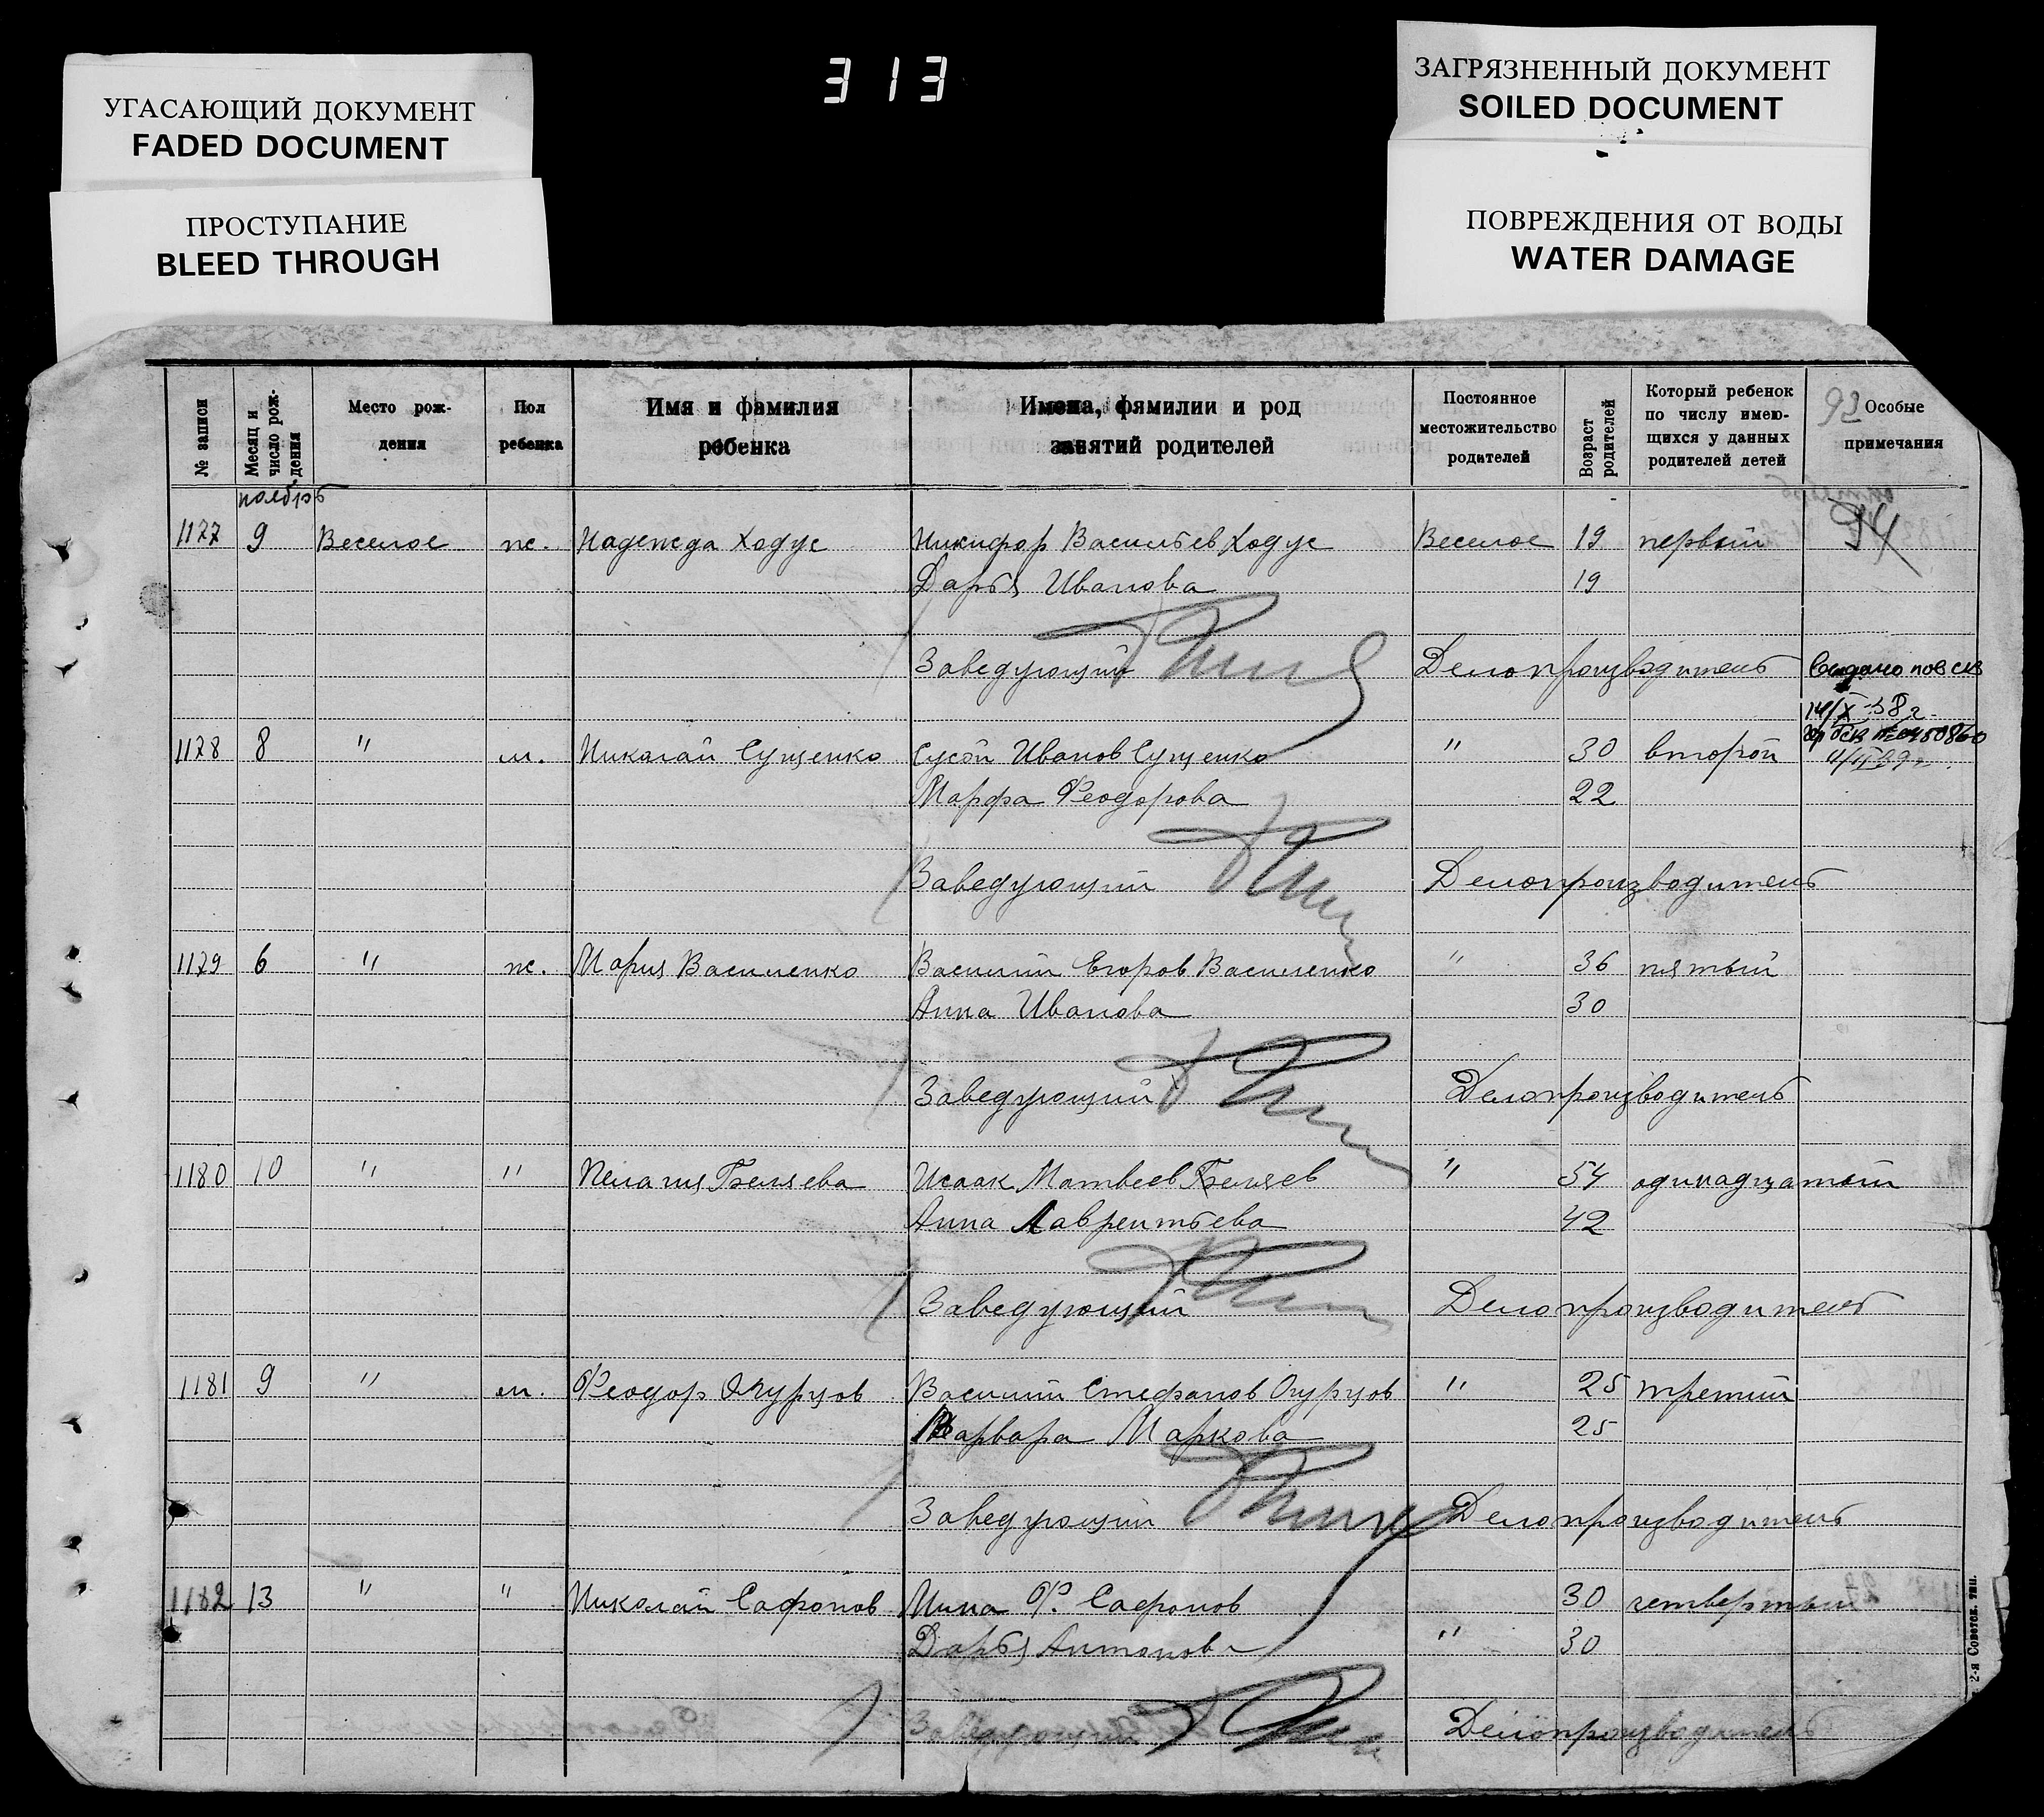 313
УГАСАЮЩИЙ ДОКУМЕНТ
FADED DOCUMENT
ПРОСТУПАНИЕ
BLEED THROUGH
ЗАГРЯЗНЕННЫЙ ДОКУМЕНТ
SOILED DOCUMENT
ПОВРЕЖДЕНИЯ ОТ ВОДЫ
WATER DAMAGE
№ записи
Месяц и число рож-дения
Место рож-дения
Пол ребенка
Имя и фамилия ребенка
Имена, фямилии и род занятий родителей
Постоянное местожительство родителей
Возраст родителей
Который ребенок по числу имею-щихся у данных родителей детей
92 Особые примечания
ноябрь
1177 9 Веселое ж. Надежда Ходус Никифор Васильев Ходус Веселое 19 первый 94
Дарья Иванова 19
Заведующий Делопроизводитель Выдано пов св
14/X-38г.
1178 8 " м. Николай Сущенко Сусой Иванов Сущенко " 30 второй
Марфа Феодорова 22
Заведующий Делопроизводитель
1179 6 " ж. Мария Василенко Василий Егоров Василенко " 36 пятый
Анна Иванова 30
Заведующий Делопроизводитель
1180 10 " " Пелагия Беляева Исаак Матвеев Беляев " 54 одинадцатый
Анна Лаврентьева 42
Заведующий Делопроизводитель
1181 9 " м. Феодор Огурцов Василий Стефанов Огурцов " 25 третий
Варвара Маркова 25
Заведующий Делопроизводитель
1182 13 " " Николай Сафонов Мина Ф. Сафонов 30 четвертый
Дарья Антонова " 30
Заведующий Делопроизводитель
2-я Советск. тип.